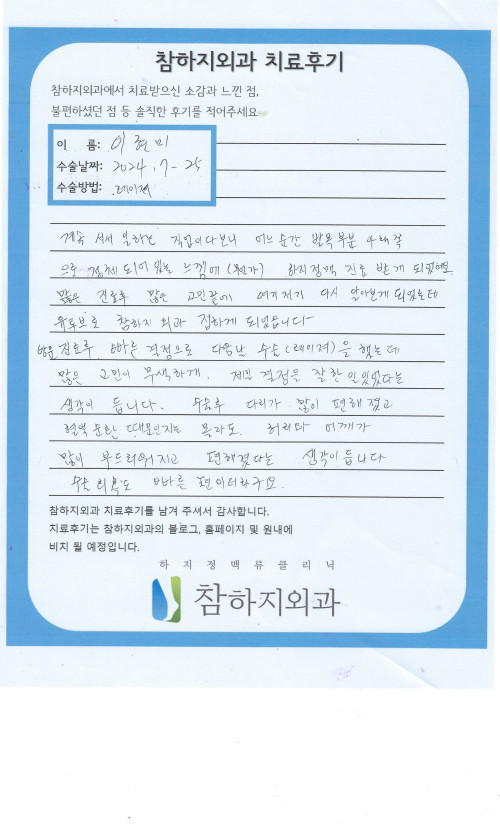 참하지외과 치료후기
참하지외과에서 치료받으신 소감과 느낀 점,
불편하셨던 점 등 솔직한 후기를 적어주세요
이 름: 이현미
수술날짜: 2024, 7-25
수술방법: 레이져
계속 서서 일하는 직업이다보니 어느순간 발목부분 아래쪽
으로 정체되어 있는 느낌에 (뭔가) 하지정맥 진료 받게 되였어요
많은 진료후 많은 고민끝에 여기저기 다시 알아보게 되었는데
유튜브로 참하지 외과 접하게 되었습니다
방문 진료후, 빠른 결정으로 다음날 수술(레이져)을 했는데
많은 고민이 무색하게, 제가 결정을 잘한 일 있었다는
생각이 듭니다. 수술후 다리가 많이 편해졌고
혈액순환 때문인지는 몰라도. 허리와 어깨가
많이 부드러워지고 편해졌다는 생각이 듭니다
수술 회복도 빠른 편이더라구요.
참하지외과 치료후기를 남겨 주셔서 감사합니다.
치료후기는 참하지외과의 블로그, 홈페이지 및 원내에
비치 될 예정입니다.
하지정맥류클리닉
참하지외과